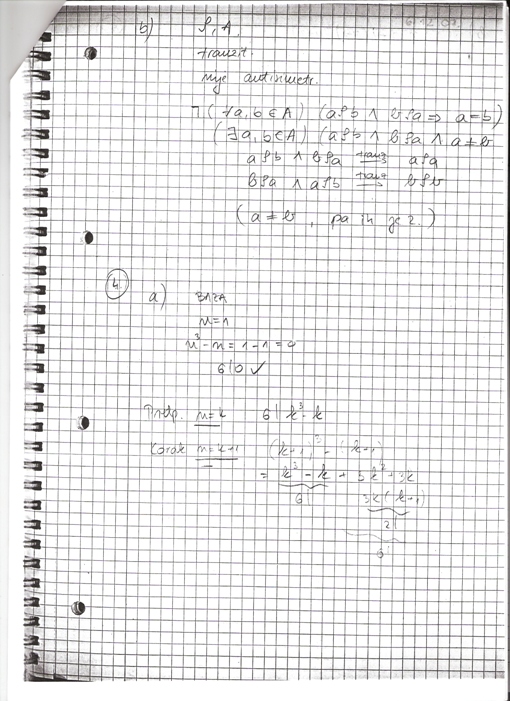 6.12.07.
b) ρ, A,
tranzit.
nije antisimetr.
¬(∀a,b∈A) (aρb ∧ bρa ⇒ a=b)
(∃a,b∈A) (aρb ∧ bρa ∧ a≠b
aρb ∧ bρa tranz ⟹ aρa
bρa ∧ aρb tranz ⟹ bρb
(a≠b, pa ih je 2.)
4.
a) BAZA
n=1
n³-n = 1-1=0
6|0 ✓
Pretp. n=k 6|k³-k
Korak n=k+1 (k+1)³-(k+1)
= k³-k + 3k²+3k
6| 3k(k+1)
2|
6|